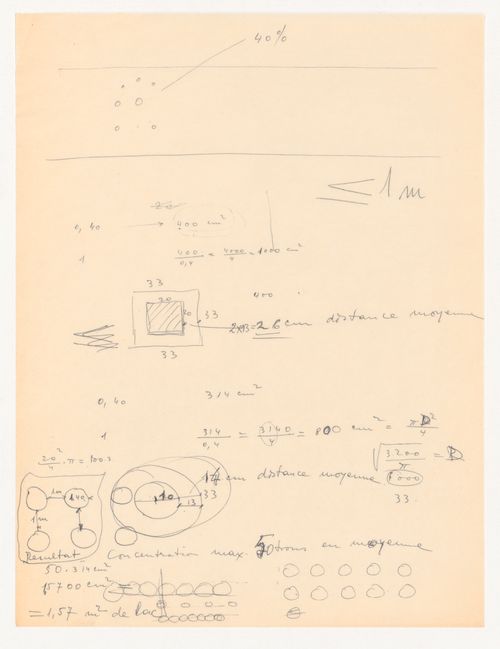 40%
≤ 1 m
20
0,40 → 400 cm²
1 400/0,4 = 4000/4 = 1000 cm²
33
20
20 33
400
2x13=26 cm distance moyenne
33
0,40 314 cm²
1 314/0,4 = 3140/4 = 800 cm² = πD²/4
20²/4 . π =
√3.200/π = D
14 cm distance moyenne 1000
33
1m
10
33
13
1m
Resultat Concentration max. 50 trous en moyenne
50 . 314 cm²
15700 cm² =
= 1,57 m² de